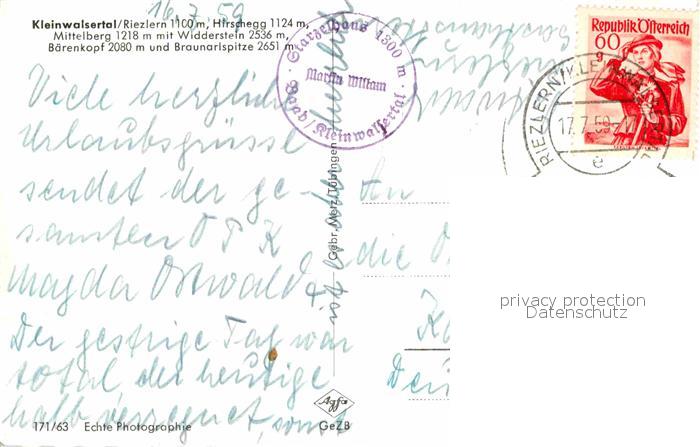 16.7.59
Kleinwalsertal/Riezlern 1100 m, Hirschegg 1124 m,
Mittelberg 1218 m mit Widderstein 2536 m,
Bärenkopf 2080 m und Braunarlspitze 2651 m,
Starzelhaus 1300 m
Martin William
Baad/Kleinwalsertal
Republik Österreich
60 g
RIEZLERN
17.7.59
e
Viele herzliche
Urlaubsgrüsse
sendet der ge-
samten OPK
Magda Ostwald
Der gestrige Tag war
total der heutige
halb verregnet, sonst
ist es
herrlich
An
die O
Dei
Gebr. Metz, Tübingen
privacy protection
Datenschutz
171/63 Echte Photographie
Agfa
GeZB